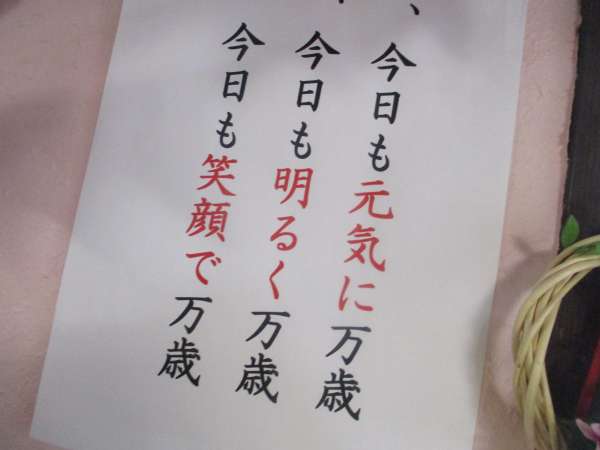 今日も元気に万歳
今日も明るく万歳
今日も笑顔で万歳